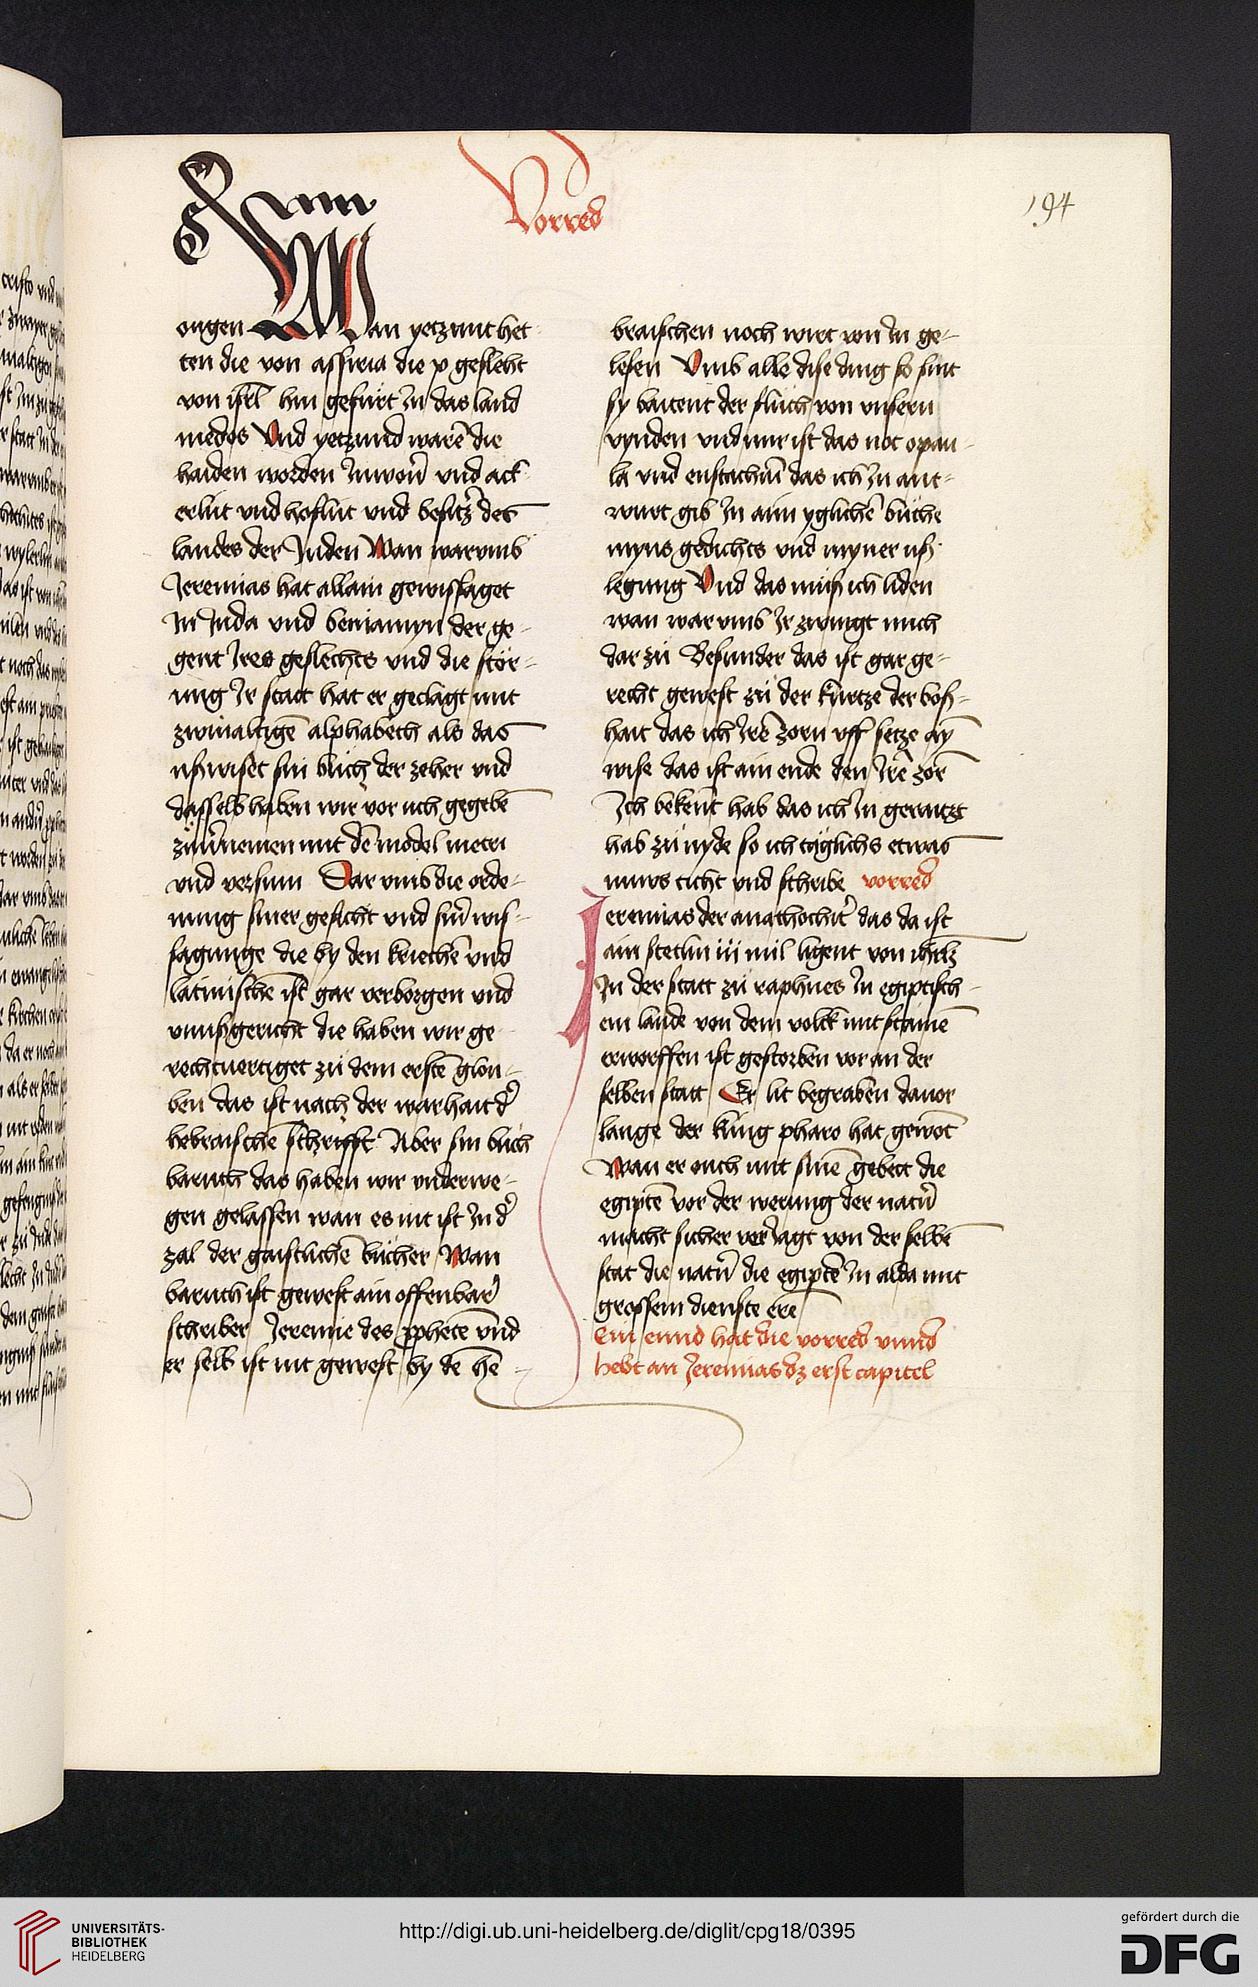 Vorred
194
ongen Wan yetzunt het-
ten die von assiria die x geslecht
von isrl hin gefürt In das land
medos Vnd yetzund warē die
haiden worden Inwoñ vnd ack-
erlüt vnd hoflüt vnd besitz̄ des
landes der Juden Wan warvmb
Jeremias hat allain gewissaget
In Juda vnd beniamyn der ge-
gent Ires geslechts vnd die stör-
ung Ir statt hat er geclagt mit
zwiualtigē alphabeth als das
ußwiset sin büch der zeher vnd
dasselb haben wir vor uch gegebē
mit dē model metri
vnd versum Dar vmb die orde-
nung siner gesicht vnd sin̄ wis-
sagunge die by den kriechē vnd
latinischē ist gar verborgen vnd
vmußgericht die haben wir ge-
rechtuertiget zü dem erstē glou-
ben das ist nach der warhait d̄
hebraischē schrifft Aber sin büch
baruch das haben wir vnderwe-
gen gelassen wan es nit ist In d̄
zal der gaistlichē bücher Wan
baruch ist gewest ain offenbar̄
schriber Jeremie des pphetē vnd
er selb ist nit gewest by dē he-
braischen noch wirt von In ge-
lesen Vmb alle dise ding so sint
sy baitent der flüch von vnsern
vynden vnd mir ist das not opau-
la vnd eustachiū das ich In ant-
wurt gib In aim yglichē büche
myns gedichts vnd myner uß-
legung Vnd das müß ich liden
wan warvmb Ir zwingt mich
dar zü Besunder das ist gar ge-
recht gewest zü der kürtze der boß-
hait das ich Irē zorn vff setze ay
wise das ist ain ende den Irē zorn
Ich bekent hab das ich In geraitzt
hab zü nyde so ich täglichs etwas
nuws ticht vnd schribe vorred
Jeremias der anathochit̄ das da ist
ain stetlin iii mil ligent von ihrlz
In der statt zü taphnes In egiptisch-
em lande von dem volck mit stainē
erworffen ist gestorben vor an der
selben statt Er lit begraben dauor
lange der küng pharo hat gewōt
Wan er ouch mit sinē gebett die
egiptē vor der werung der nat̄
macht sicher ver Iagt von der selbē
stat die nat̄ die egiptē In alda mit
grossem dienste ere
Ein ennd hat die vorred vnnd
hebt an Jeremias dz erst capitel
UNIVERSITÄTS-
BIBLIOTHEK
HEIDELBERG
http://digi.ub.uni-heidelberg.de/diglit/cpg18/0395
gefördert durch die
DFG